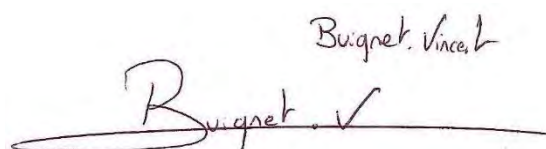 Buignet. Vincent
Buignet. V